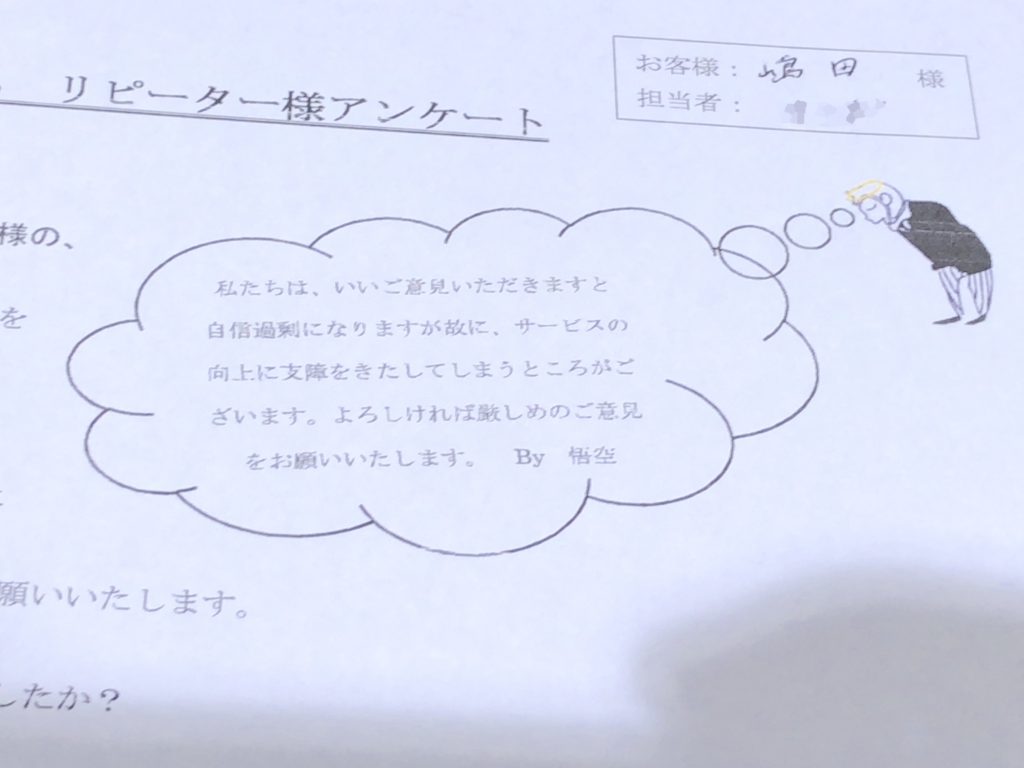 お客様： 嶋田 様
担当者：
リピーター様アンケート
様の、
を
私たちは、いいご意見いただきますと
自信過剰になりますが故に、サービスの
向上に支障をきたしてしまうところがご
ざいます。よろしければ厳しめのご意見
をお願いいたします。 By 悟空
願いいたします。
したか？